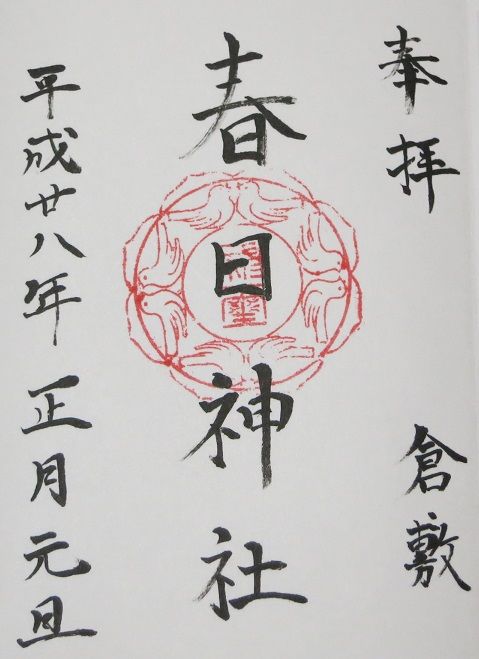 奉拝
倉敷
春日神社
平成廿八年正月元旦